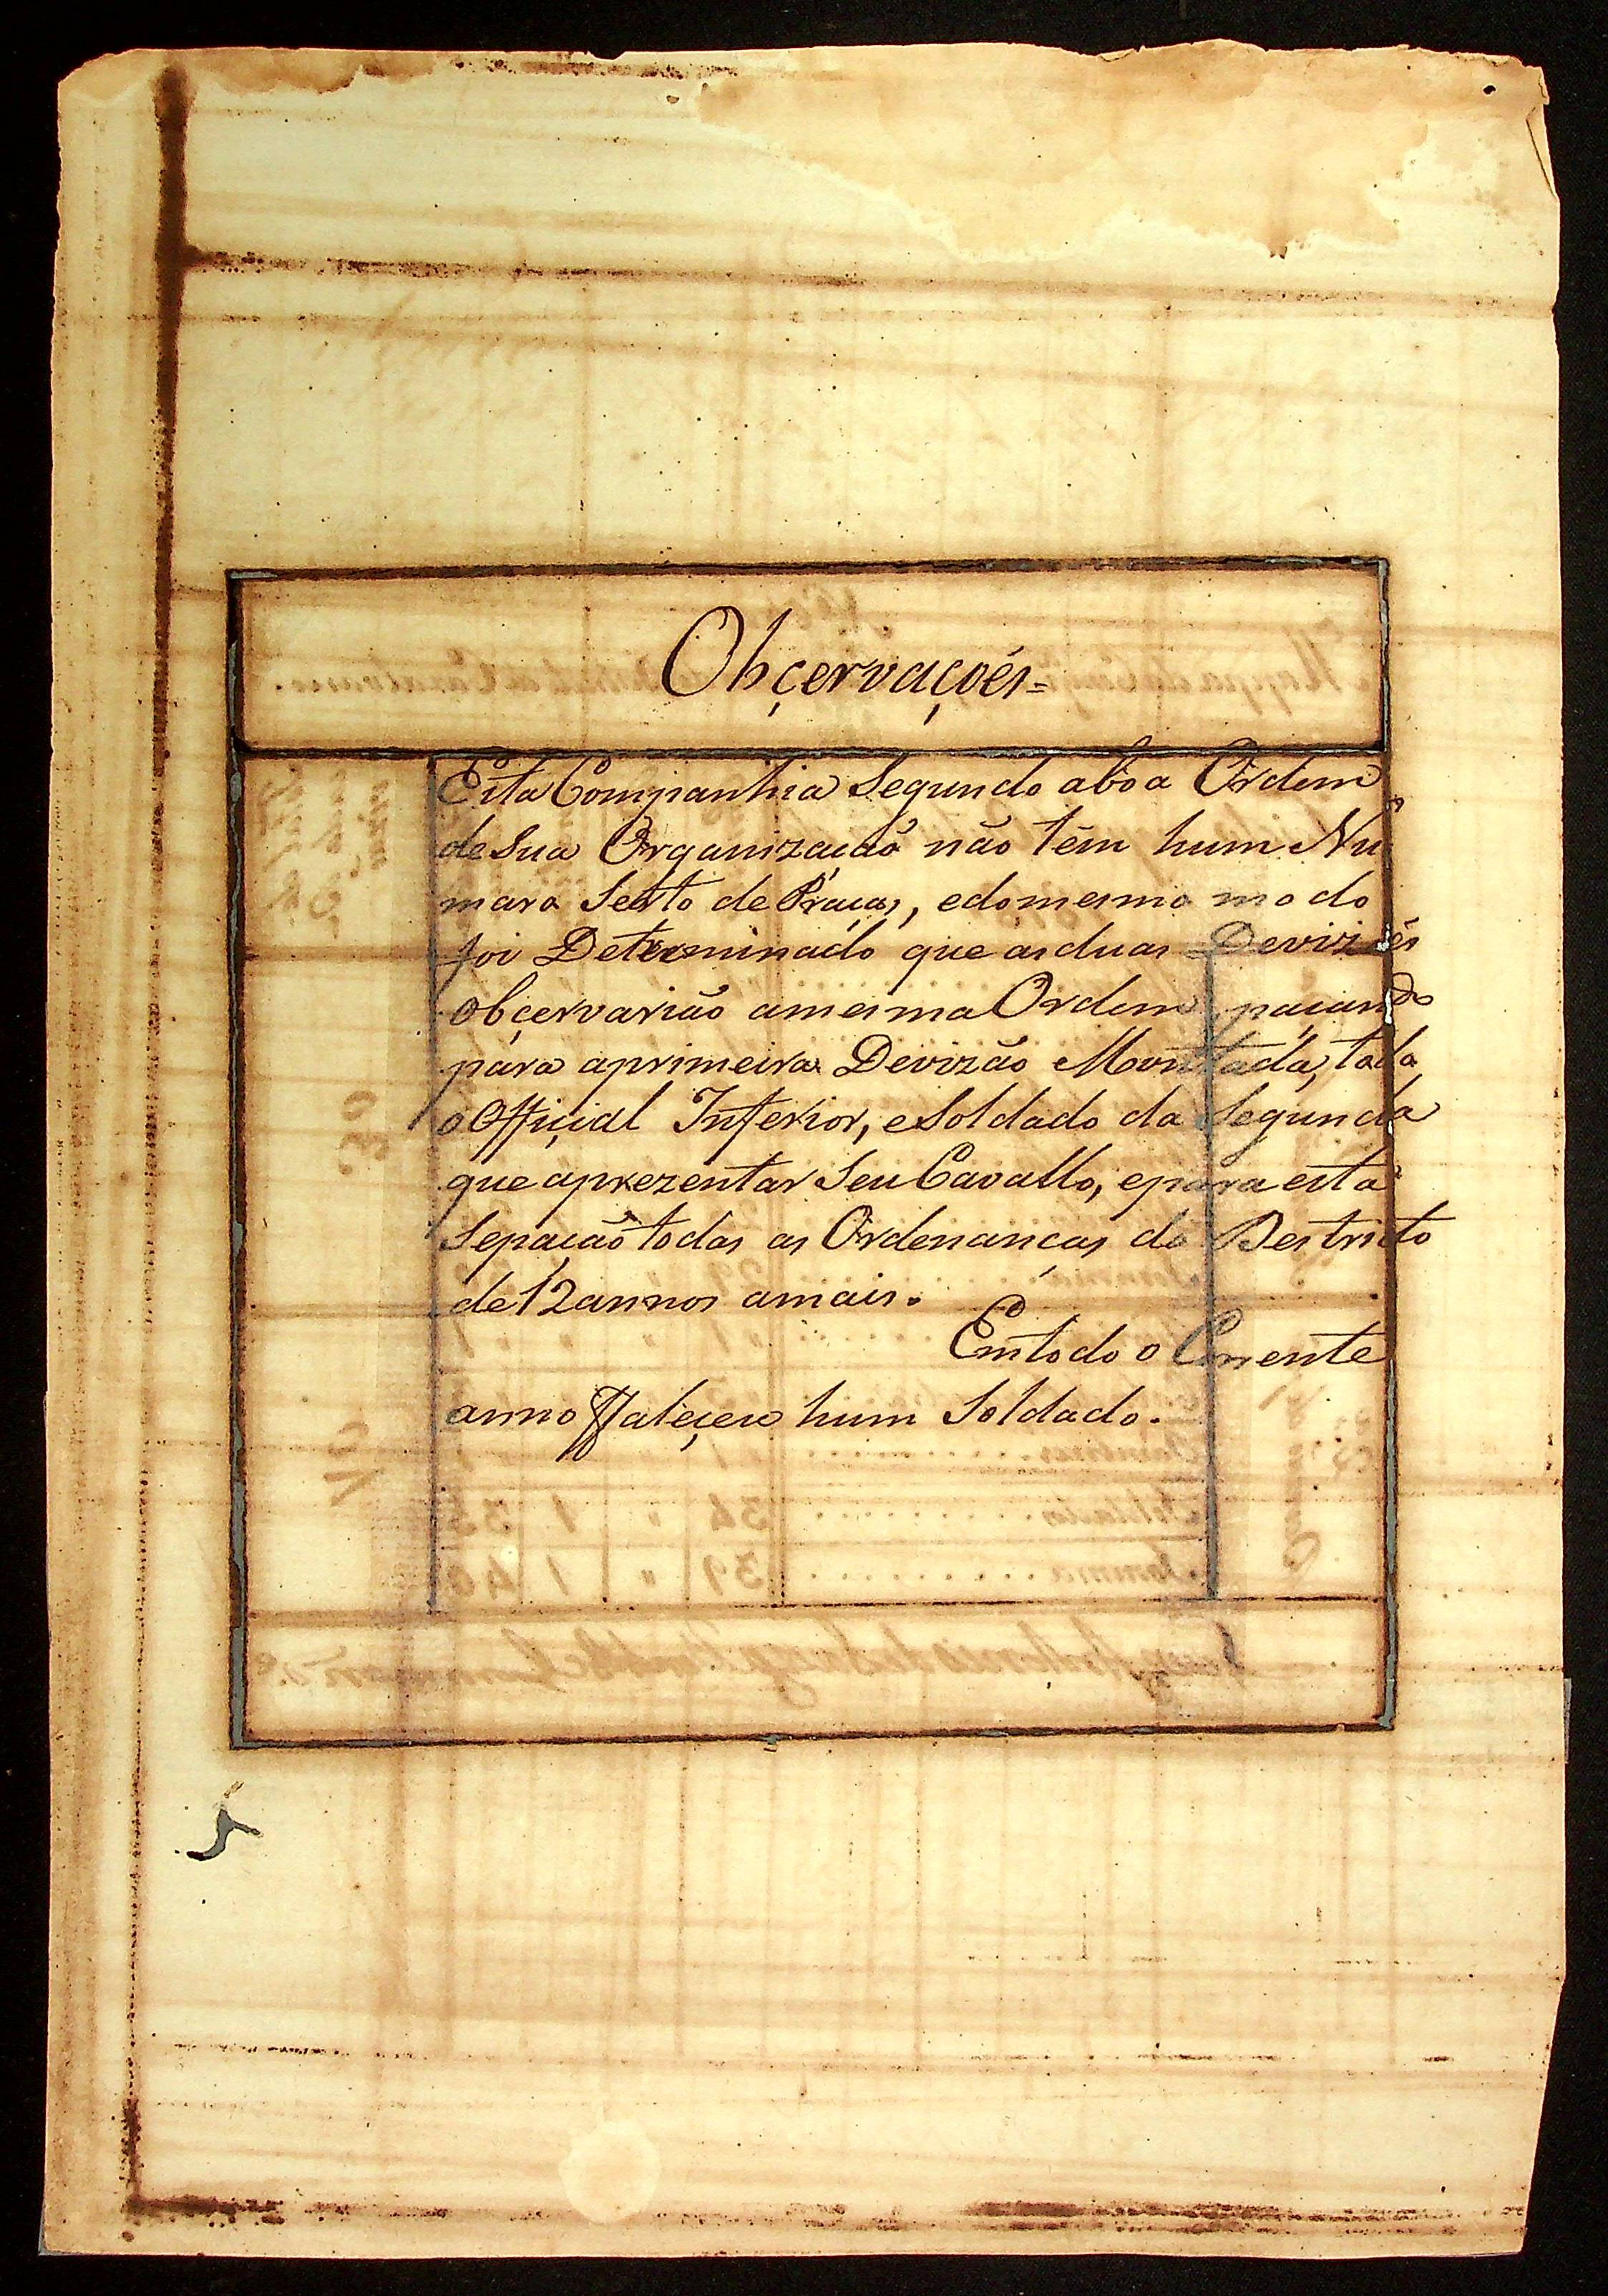 Obçervaçoẽs=
Esta Companhia Segundo aboa Ordem
de Sua Organizaçaõ não tem hum Nu
mara Serto de Praças, e do mesmo modo
foi Determinado que as duas Devizoẽs
obçervarião amesma Ordem paçando
para aprimeira Devizão Montada, todo
o Offiçial Inferior, e Soldado da Segunda
que aprezentar Seu Cavallo, epara esta
Sepaçaõ todas as Ordenanças do Destricto
de 12 annos amais.
Em todo o Corrente
anno Ffaleçeu hum Soldado.